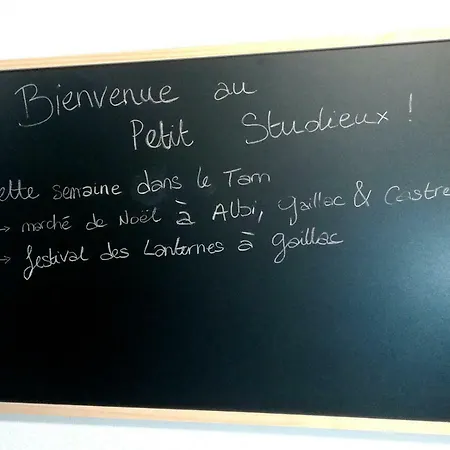 Bienvenue au
Petit Studieux !
ette semaine dans le Tarn
→ marché de Noël à Albi, Gaillac & Castre
→ festival des Lanternes à Gaillac